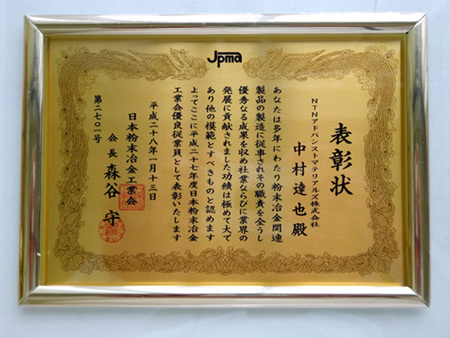 Jpma
表彰状
NTNアドバンストマテリアルズ株式会社
中村達也殿
あなたは多年にわたり粉末冶金関連
製品の製造に従事されその職責を全うし
優秀なる成果を収め社業ならびに業界の
発展に貢献されました功績は極めて大で
あり他の模範とすべきものと認めます
よってここに平成二十七年度日本粉末冶金
工業会優良従業員として表彰いたします
平成二十八年一月十三日
日本粉末冶金工業会
会長 森谷 守
第二七〇一号